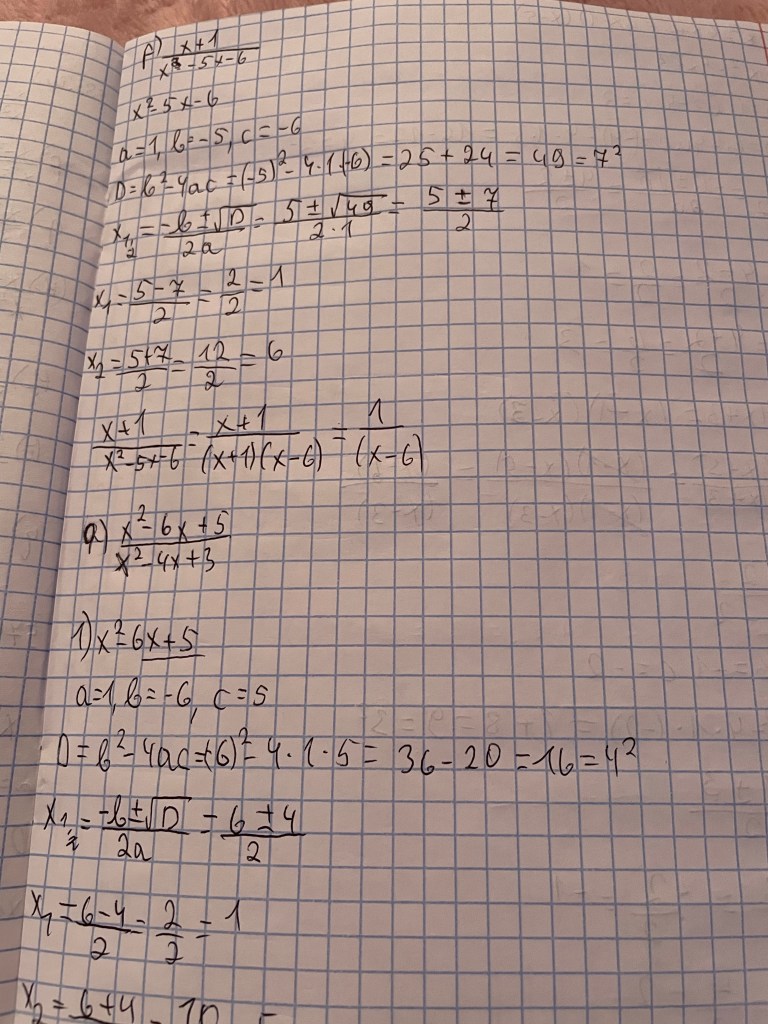 б) x+1 / x²-5x-6
x²-5x-6
a=1, b=-5, c=-6
D=b²-4ac=(-5)²-4·1·(-6)=25+24=49=7²
x₁,₂=-b±√D / 2a = 5±√49 / 2·1 = 5±7 / 2
x₁=5-7 / 2 = 2 / 2 = 1
x₂=5+7 / 2 = 12 / 2 = 6
x+1 / x²-5x-6 = x+1 / (x+1)(x-6) = 1 / (x-6)
а) x²-6x+5 / x²-4x+3
1) x²-6x+5
a=1, b=-6, c=5
D=b²-4ac=(-6)²-4·1·5=36-20=16=4²
x₁,₂=-b±√D / 2a = 6±4 / 2
x₁=6-4 / 2 = 2 / 2 = 1
x₂=6+4 = 10